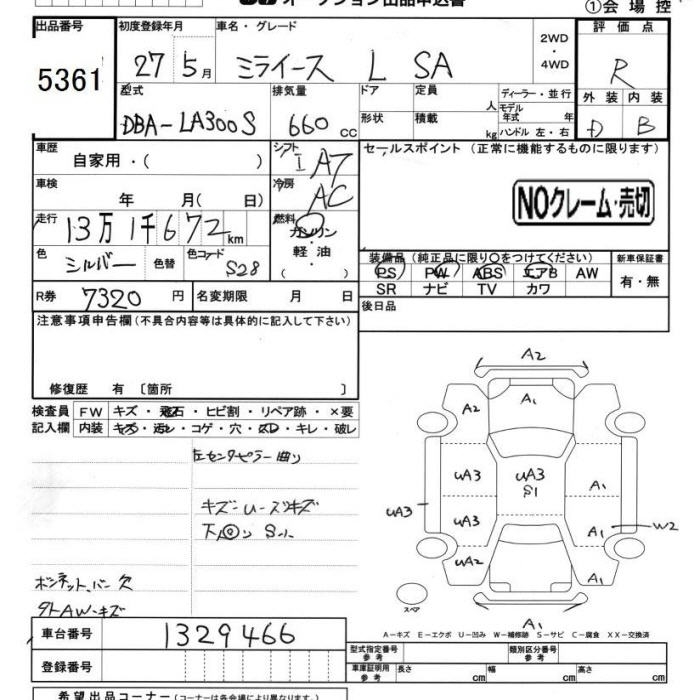 オークション出品申込書
①会場控
出品番号 初度登録年月 車名・グレード 評価点
5361 27年 5月 ミライース L SA 2WD・4WD R
型式 排気量 ドア 定員 ディーラー・並行 外装 内装
DBA-LA300S 660cc 形状 積載 人 kg モデル年式 年 ハンドル 左・右 D B
車歴 自家用・( ) シフト I AT セールスポイント (正常に機能するものに限ります)
車検 年 月( 日) 冷房 AC
NOクレーム・売切
走行 13万1千672km 燃料 ガソリン・軽油・( )
色 シルバー 色替 色コード S28
装備品 (純正品に限り○をつけてください) 新車保証書
PS PW ABS エアB AW 有・無
SR ナビ TV カワ
R券 7320円 名変期限 月 日
後日品
注意事項申告欄 (不具合内容等は具体的に記入して下さい)
修復歴 有 〔箇所 〕
検査員 FW キズ・飛石・ヒビ割・リペア跡・×要
記入欄 内装 キズ・汚レ・コゲ・穴・スレ・キレ・破レ
左センタピラー曲り
キズ-U-ズキズ
S-1
ボンネットバー欠
タトAW-キズ
A2
A1
A2
uA3 uA3 S1 A1
uA3 uA3 A1 W2
uA2 A1
A1
スペア
A-キズ E-エクボ U-凹み W-補修跡 S-サビ C-腐食 XX-交換済
車台番号 1329466
型式指定番号 参考 類別区分番号 参考
登録番号
車庫証明用 参考 長さ cm 幅 cm 高さ cm
希望出品コーナー (コーナーは各会場により異なります。)